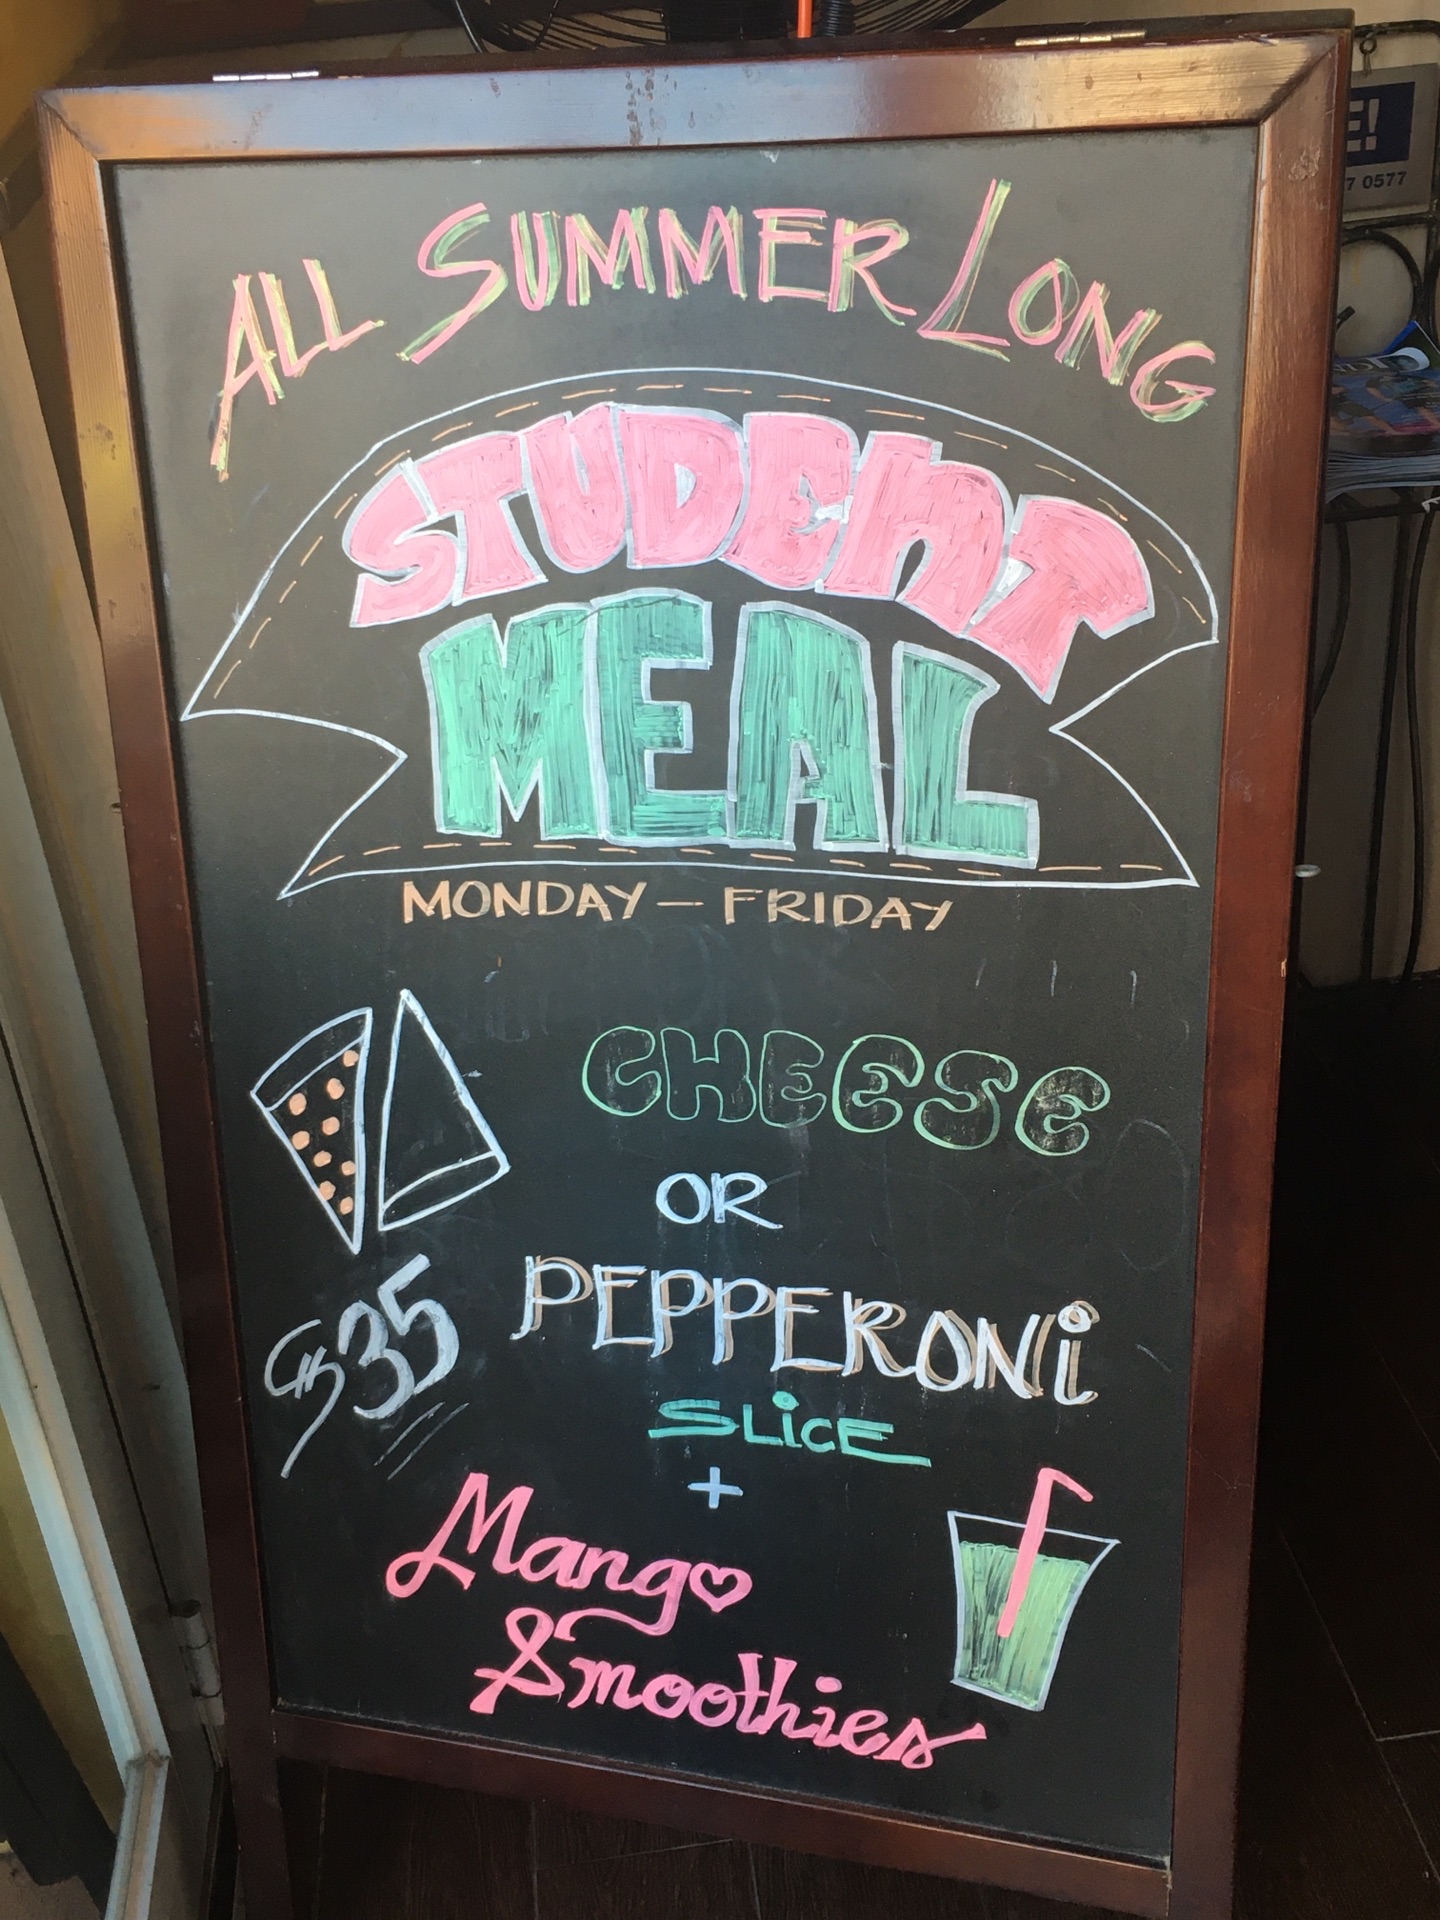 ALL SUMMER LONG
STUDENT
MEAL
MONDAY - FRIDAY
CHEESE
OR
PEPPERONi
SLiCE
$35
+
Mango
Smoothies
E!
7 0577